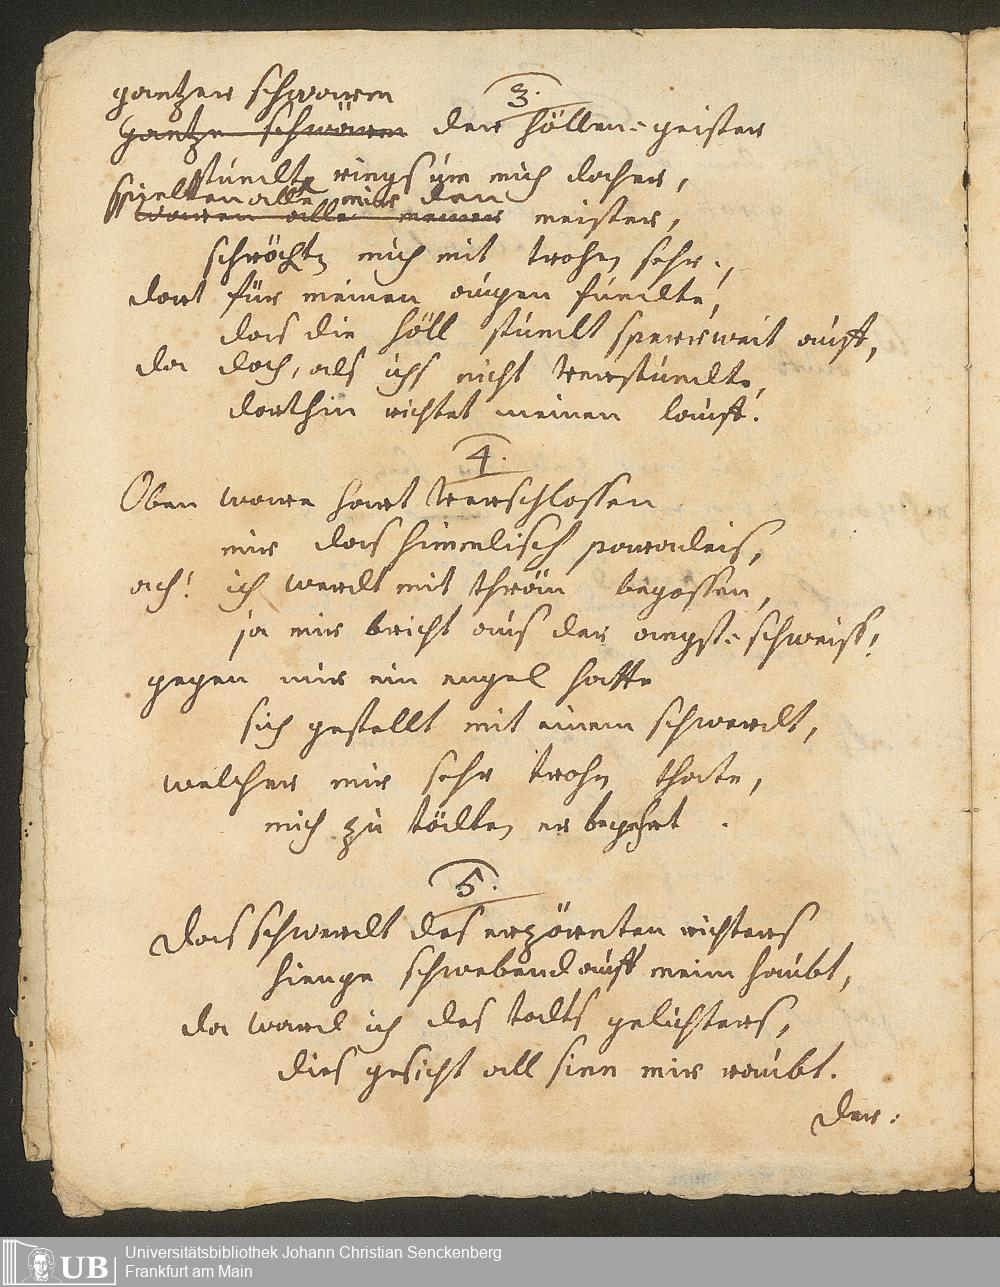 3.
gantzer schwarm
gantze schwärm der höllen=geister
stundte rings üm mich daher,
spielten alle mir den
waren alle meiner meister,
schröchtn mich mit trohen sehr.,
dort für meinen augen fundte,
das die höll stundt sperrweit auff,
da doch, als ichs nicht verstundte,
dorthin richtet meinen lauff.
4.
Oben ware hart verschlossen
mir das himmlisch paradeis,
ach! ich werdt mit thrän begossen,
ja mir bricht aus der angst=schweiss!
gegen mir ein engel hatte
sich gestellt mit einem schwerdt,
welcher mir sehr trohen thate,
mich zu tödten er begehrt.
5.
Das schwerdt des erzörnten richters
hienge schwebend auff meim haubt,
da ward ich des todts gelichters,
dies gesicht all sinn mir raubt.
Der:
UB
Universitätsbibliothek Johann Christian Senckenberg
Frankfurt am Main